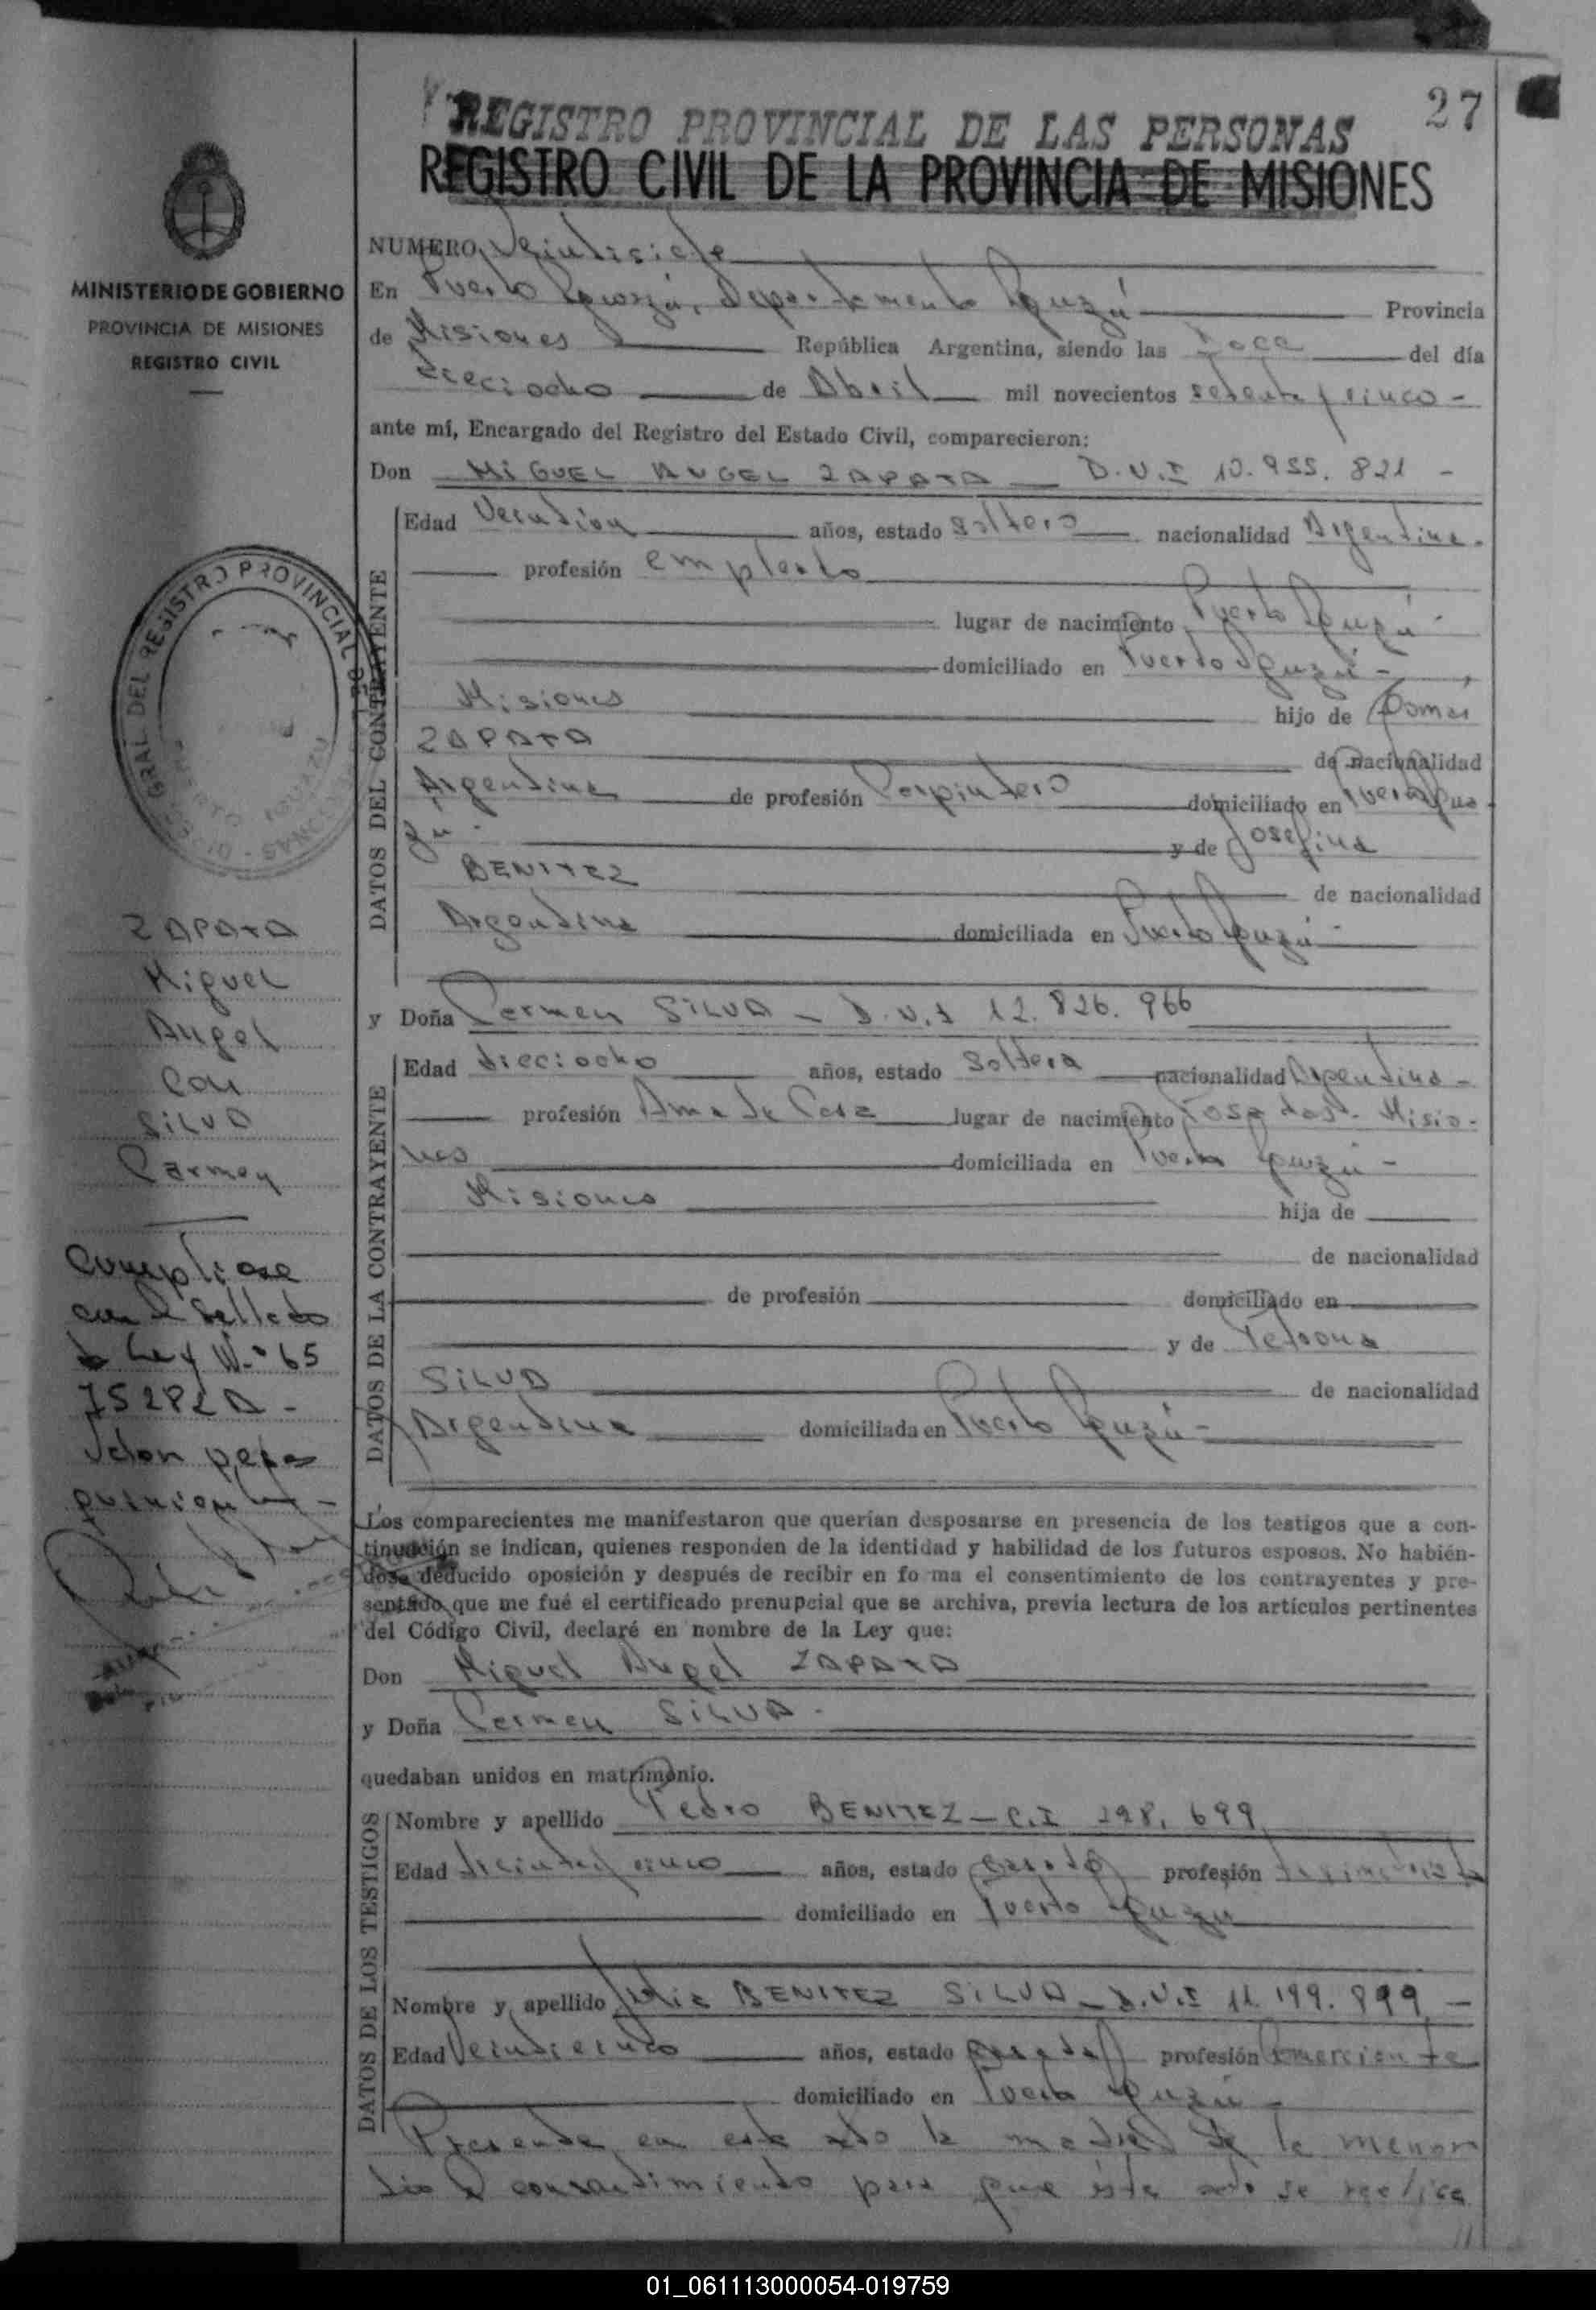 27
REGISTRO PROVINCIAL DE LAS PERSONAS
REGISTRO CIVIL DE LA PROVINCIA DE MISIONES
MINISTERIO DE GOBIERNO
PROVINCIA DE MISIONES
REGISTRO CIVIL
NUMERO Veintisiete
En Puerto Iguazú, Departamento Iguazú Provincia
de Misiones República Argentina, siendo las doce del día
dieciocho de Abril mil novecientos setenta y cinco -
ante mí, Encargado del Registro del Estado Civil, comparecieron:
Don MIGUEL ANGEL ZAPATA D.N.I 10.955.821 -
DATOS DEL CONTRAYENTE
Edad años, estado soltero nacionalidad Argentina.
profesión empleado
lugar de nacimiento Puerto Iguazú
domiciliado en Puerto Iguazú -
Misiones hijo de Tomás
ZAPATA de nacionalidad
Argentina de profesión Carpintero domiciliado en Puerto Igua
zú - y de Josefina
BENITEZ de nacionalidad
Argentina domiciliada en Puerto Iguazú -
y Doña Carmen SILVA - D.N.I 12.826.966
DATOS DE LA CONTRAYENTE
Edad dieciocho años, estado soltera nacionalidad Argentina -
profesión Ama de Casa lugar de nacimiento Posadas. Misio-
nes domiciliada en Puerto Iguazú -
Misiones hija de
de nacionalidad
de profesión domiciliado en
y de Petrona
SILVA de nacionalidad
Argentina domiciliada en Puerto Iguazú -
Los comparecientes me manifestaron que querían desposarse en presencia de los testigos que a con-
tinuación se indican, quienes responden de la identidad y habilidad de los futuros esposos. No habién-
dose deducido oposición y después de recibir en fo ma el consentimiento de los contrayentes y pre-
sentado que me fué el certificado prenupcial que se archiva, previa lectura de los artículos pertinentes
del Código Civil, declaré en nombre de la Ley que:
Don Miguel Angel ZAPATA
y Doña Carmen SILVA -
quedaban unidos en matrimonio.
DATOS DE LOS TESTIGOS
Nombre y apellido Pedro BENITEZ - C.I 298.699
Edad treinta y cinco años, estado casado profesión
domiciliado en Puerto Iguazú
Nombre y apellido Julia BENITEZ SILVA - D.N.I 11.199.899 -
Edad Veinticinco años, estado casada profesión Comerciante
domiciliado en Puerto Iguazú -
Presente en este acto la madre de la menor
dio consentimiento para que éste acto se realice
//
ZAPATA
Miguel
Angel
Con
SILVA
Carmen
Cumpliose
con el sellado
Ley N.º 65
75282A -
valor pesos
quinientos -
01_061113000054-019759